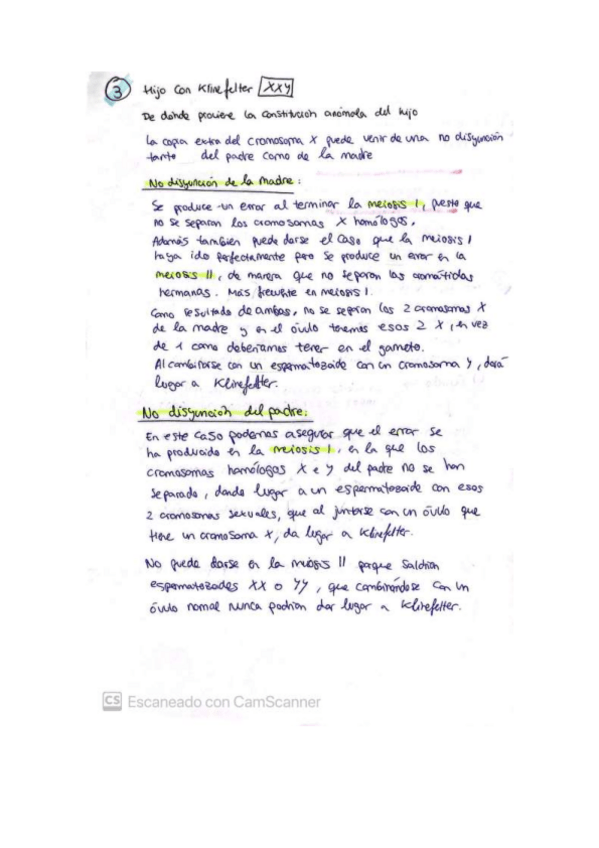 3 Hijo con Klinefelter XXY
De donde proviene la constitución anómala del hijo
La copia extra del cromosoma X puede venir de una no disyunción
tanto del padre como de la madre
No disyunción de la madre:
Se produce un error al terminar la meiosis I, puesto que
no se separan los cromosomas X homólogos.
Además también puede darse el caso que la meiosis I
haya ido perfectamente pero se produce un error en la
meiosis II, de manera que no separan las cromátidas
hermanas. Más frecuente en meiosis I.
Como resultado de ambas, no se separan los 2 cromosomas X
de la madre y en el óvulo tenemos esos 2 X, en vez
de 1 como deberíamos tener en el gameto.
Al combinarse con un espermatozoide con un cromosoma Y, dará
lugar a Klinefelter.
No disyunción del padre:
En este caso podemos asegurar que el error se
ha producido en la meiosis I, en la que los
cromosomas homólogos X e Y del padre no se han
separado, dando lugar a un espermatozoide con esos
2 cromosomas sexuales, que al juntarse con un óvulo que
tiene un cromosoma X, da lugar a Klinefelter.
No puede darse en la meiosis II porque saldrían
espermatozoides XX o YY, que combinándose con un
óvulo normal nunca podrían dar lugar a Klinefelter.
CS Escaneado con CamScanner